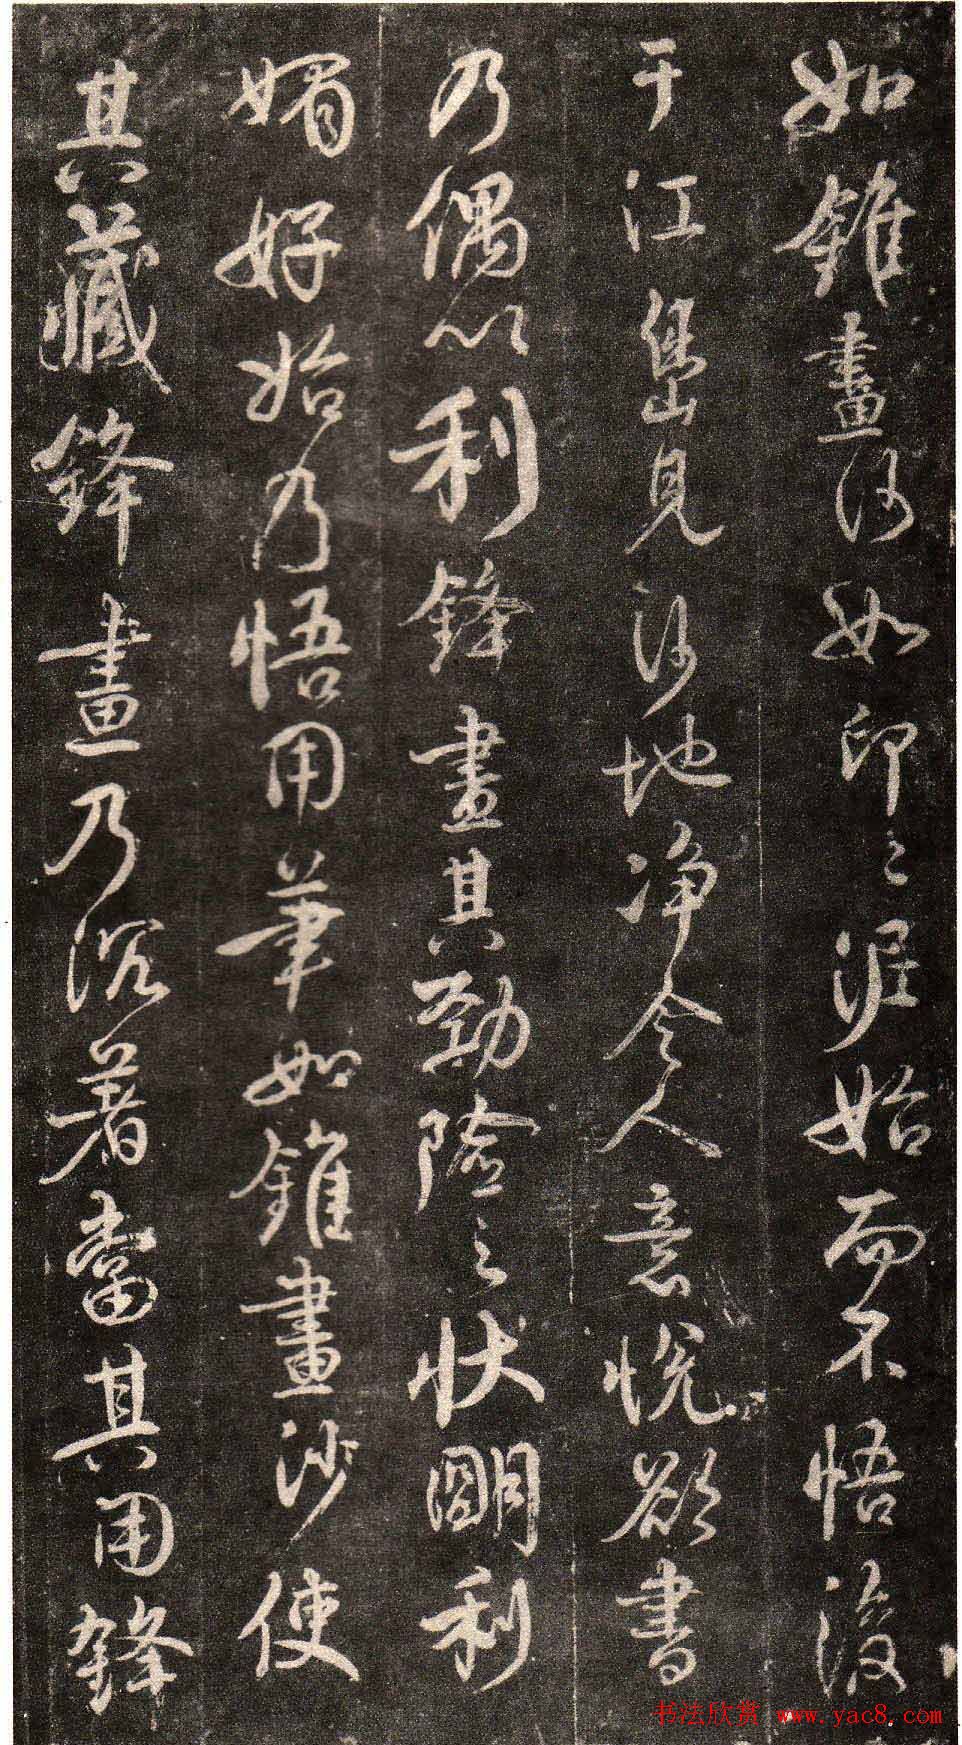 如錐畫沙如印印泥始而不悟後
于江島見沙地净令人意悅欲書
乃偶以利鋒畫其勁險之狀明利
媚好始乃悟用筆如錐畫沙使
其藏鋒畫乃沉著當其用鋒
书法欣赏 www.yac8.com